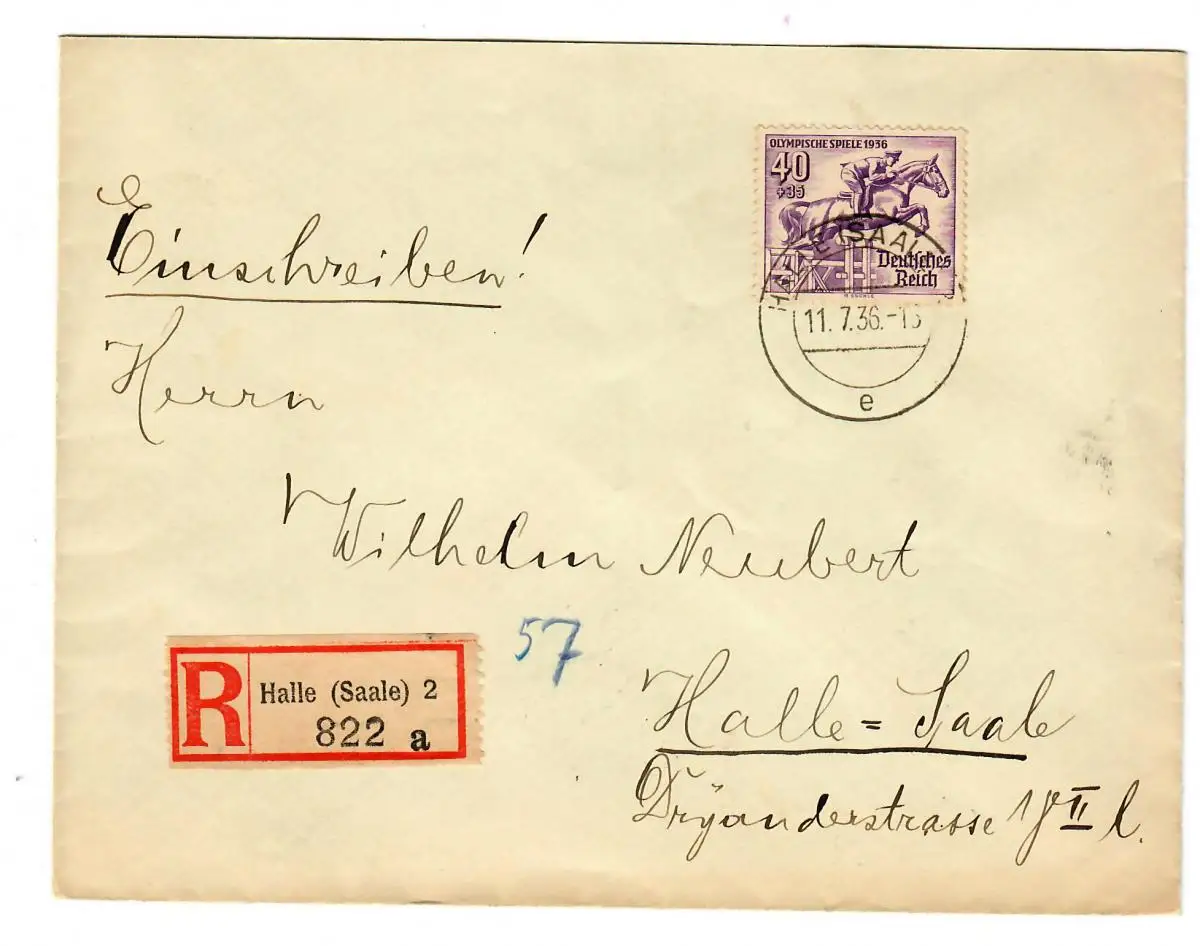 OLYMPISCHE SPIELE 1936
40
+35
Deutsches
Reich
HALLE (SAALE)
11. 7. 36.-13
e
Einschreiben!
Herrn
Wilhelm Neubert
57
R
Halle (Saale) 2
822 a
Halle = Saale
Dryanderstrasse II l.